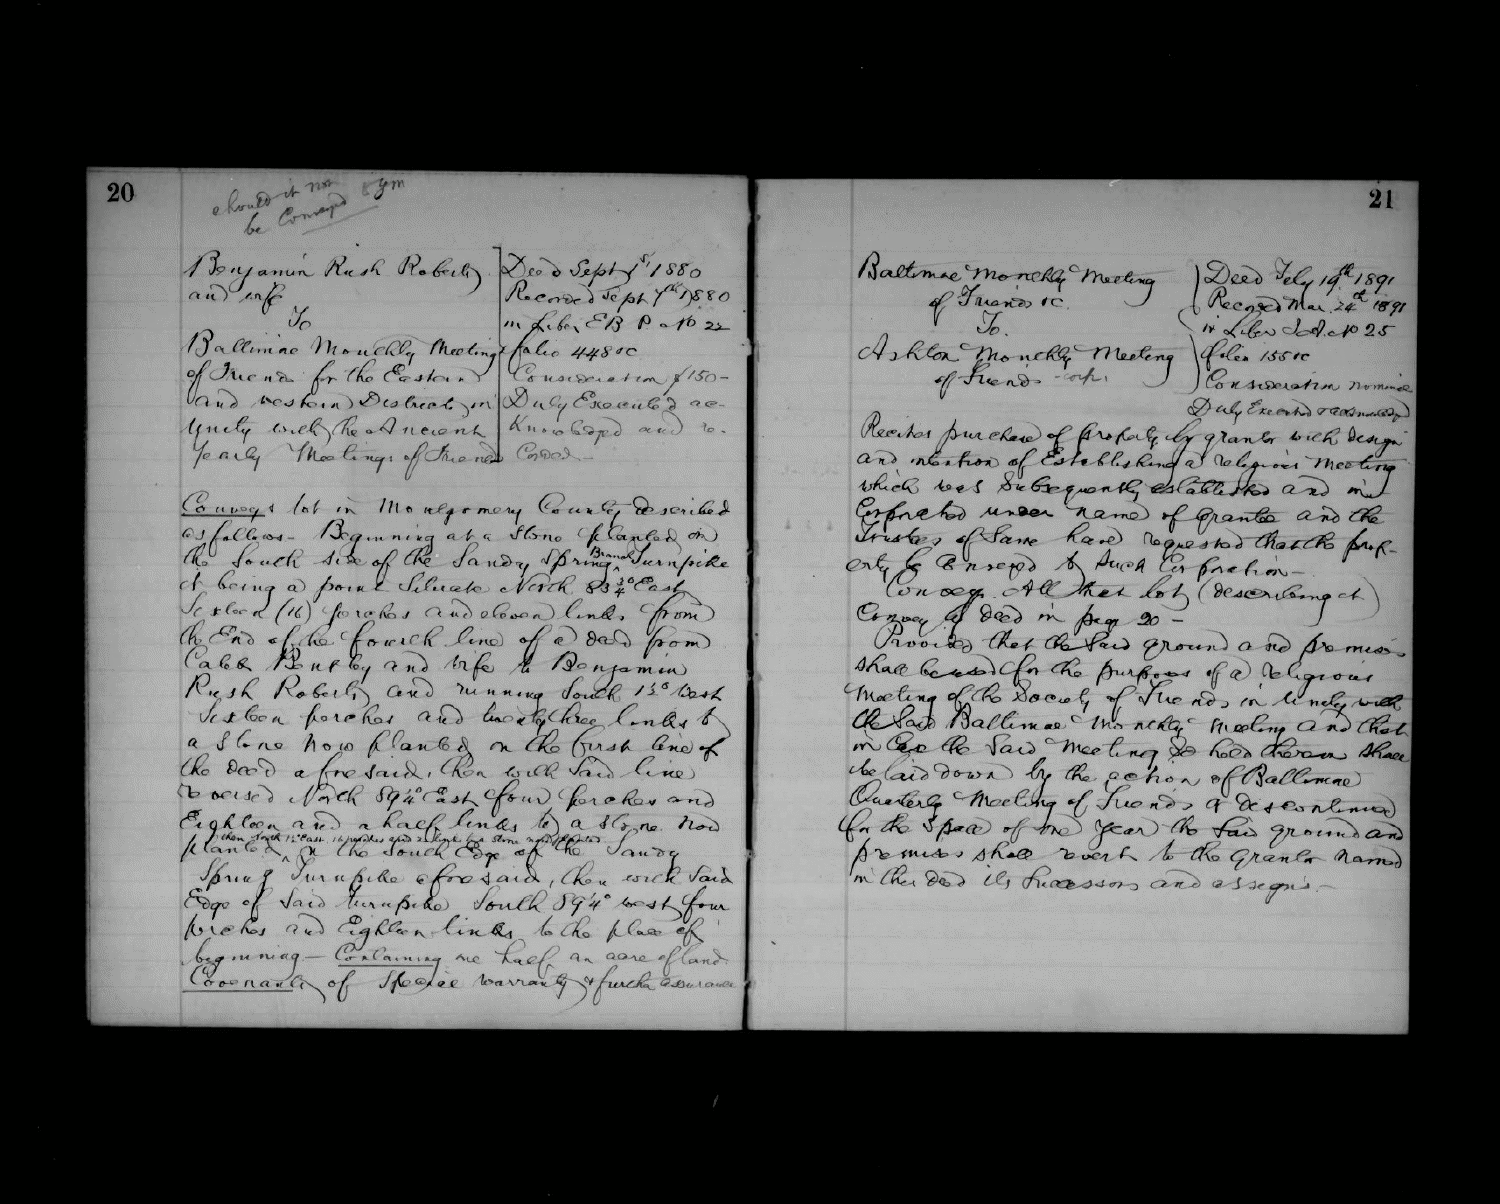 20
should it not
be Conveyed
Benjamin Rush Roberts
and wife
To
Baltimore Monthly Meeting
of Friends for the Eastern
and western Districts in
Unity with the Ancient
Yearly Meetings of Friends
Deed Sept 1st, 1880
Recorded Sept 7th 1880
in Liber E B P No 22
folio 448 &c
Consideration $150-
Duly Executed ac-
knowledged and re-
corded-
Conveys lot in Montgomery County described
as follows- Beginning at a Stone planted on
the South side of the Sandy Spring Branch Turnpike
it being a point Situate North 83 3/4° East
Sixteen (16) perches and eleven links from
the End of the fourth line of a deed from
Caleb Bentley and wife to Benjamin
Rush Roberts and running South 1½° West
Sixteen perches and twenty three links to
a Stone now planted on the first line of
the deed aforesaid, then with Said line
reversed North 89¼° East four perches and
Eighteen and a half links to a Stone now
planted then North 1½° East 16 perches and links to a Stone now planted on the South Edge of the Sandy
Spring Turnpike aforesaid, then with Said
Edge of Said turnpike South 89¼° west four
perches and Eighteen links to the place of
beginning- Containing one half an acre of land
Covenants of Special warranty & further assurance
21
Baltimore Monthly Meeting
of Friends &c.
To.
Ashton Monthly Meeting
of Friends - corp.
Deed Feby 19th 1891
Recorded Mar. 24th 1891
in Liber J.A. No 25
folio 155 &c
Consideration nominal
Duly Executed & acknowledged
Recites purchase of property by grantor with design
and intention of Establishing a religious Meeting
which was Subsequently established and in-
Corporated under name of Grantee and the
Trustees of Same have requested that the prop-
erty be Conveyed to Such Corporation-
Conveys All that lot (describing it)
Convey'd by deed in page 20 -
Provided that the Said ground and premises
shall be used for the purposes of a religious
Meeting of the Society of Friends in Unity with
the Said Baltimore Monthly Meeting and that
in Case the Said Meeting to be held therein shall
be laid down by the action of Baltimore
Quarterly Meeting of Friends & descontinued
for the Space of one Year the Said ground and
premises shall revert to the Grantor named
in the deed its Successors and assigns.-